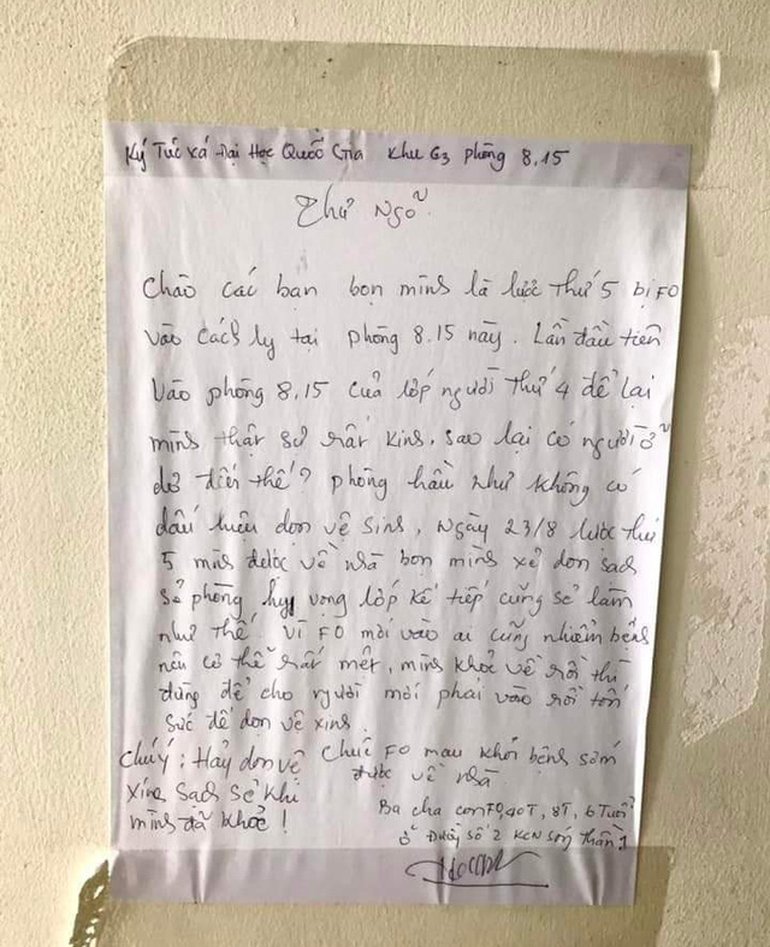 Ký Túc xá Đại Học Quốc Gia Khu G3 phòng 8.15
Thư Ngõ
Chào các bạn bọn mình là lược thứ 5 bị F0
vào cách ly tại phòng 8.15 này. Lần đầu tiên
vào phòng 8.15 của lớp người thứ 4 để lại
mình thật sự rất kinh, sao lại có người ở
dơ đến thế? phòng hầu như không có
dấu hiệu dọn vệ sinh, Ngày 23/8 lược thứ
5 mình được về nhà bọn mình xẻ dọn sạch
sẻ phòng hy vọng lớp kế tiếp cũng sẻ làm
như thế. Vì F0 mới vào ai cũng nhiểm bệnh
nên có thể rất mệt, mình khoẻ về rồi thì
đừng để cho người mới phải vào rồi tốn
sức để dọn vệ xinh.
Chúc F0 mau khỏi bệnh sớm
được về nhà
Chú ý: Hảy dọn vệ
xinh sạch sẻ khi
mình đã khoẻ!
Ba cha con F0, 40T, 8T, 6 Tuổi
ở Đường số 2 KCN Sóng Thần 1